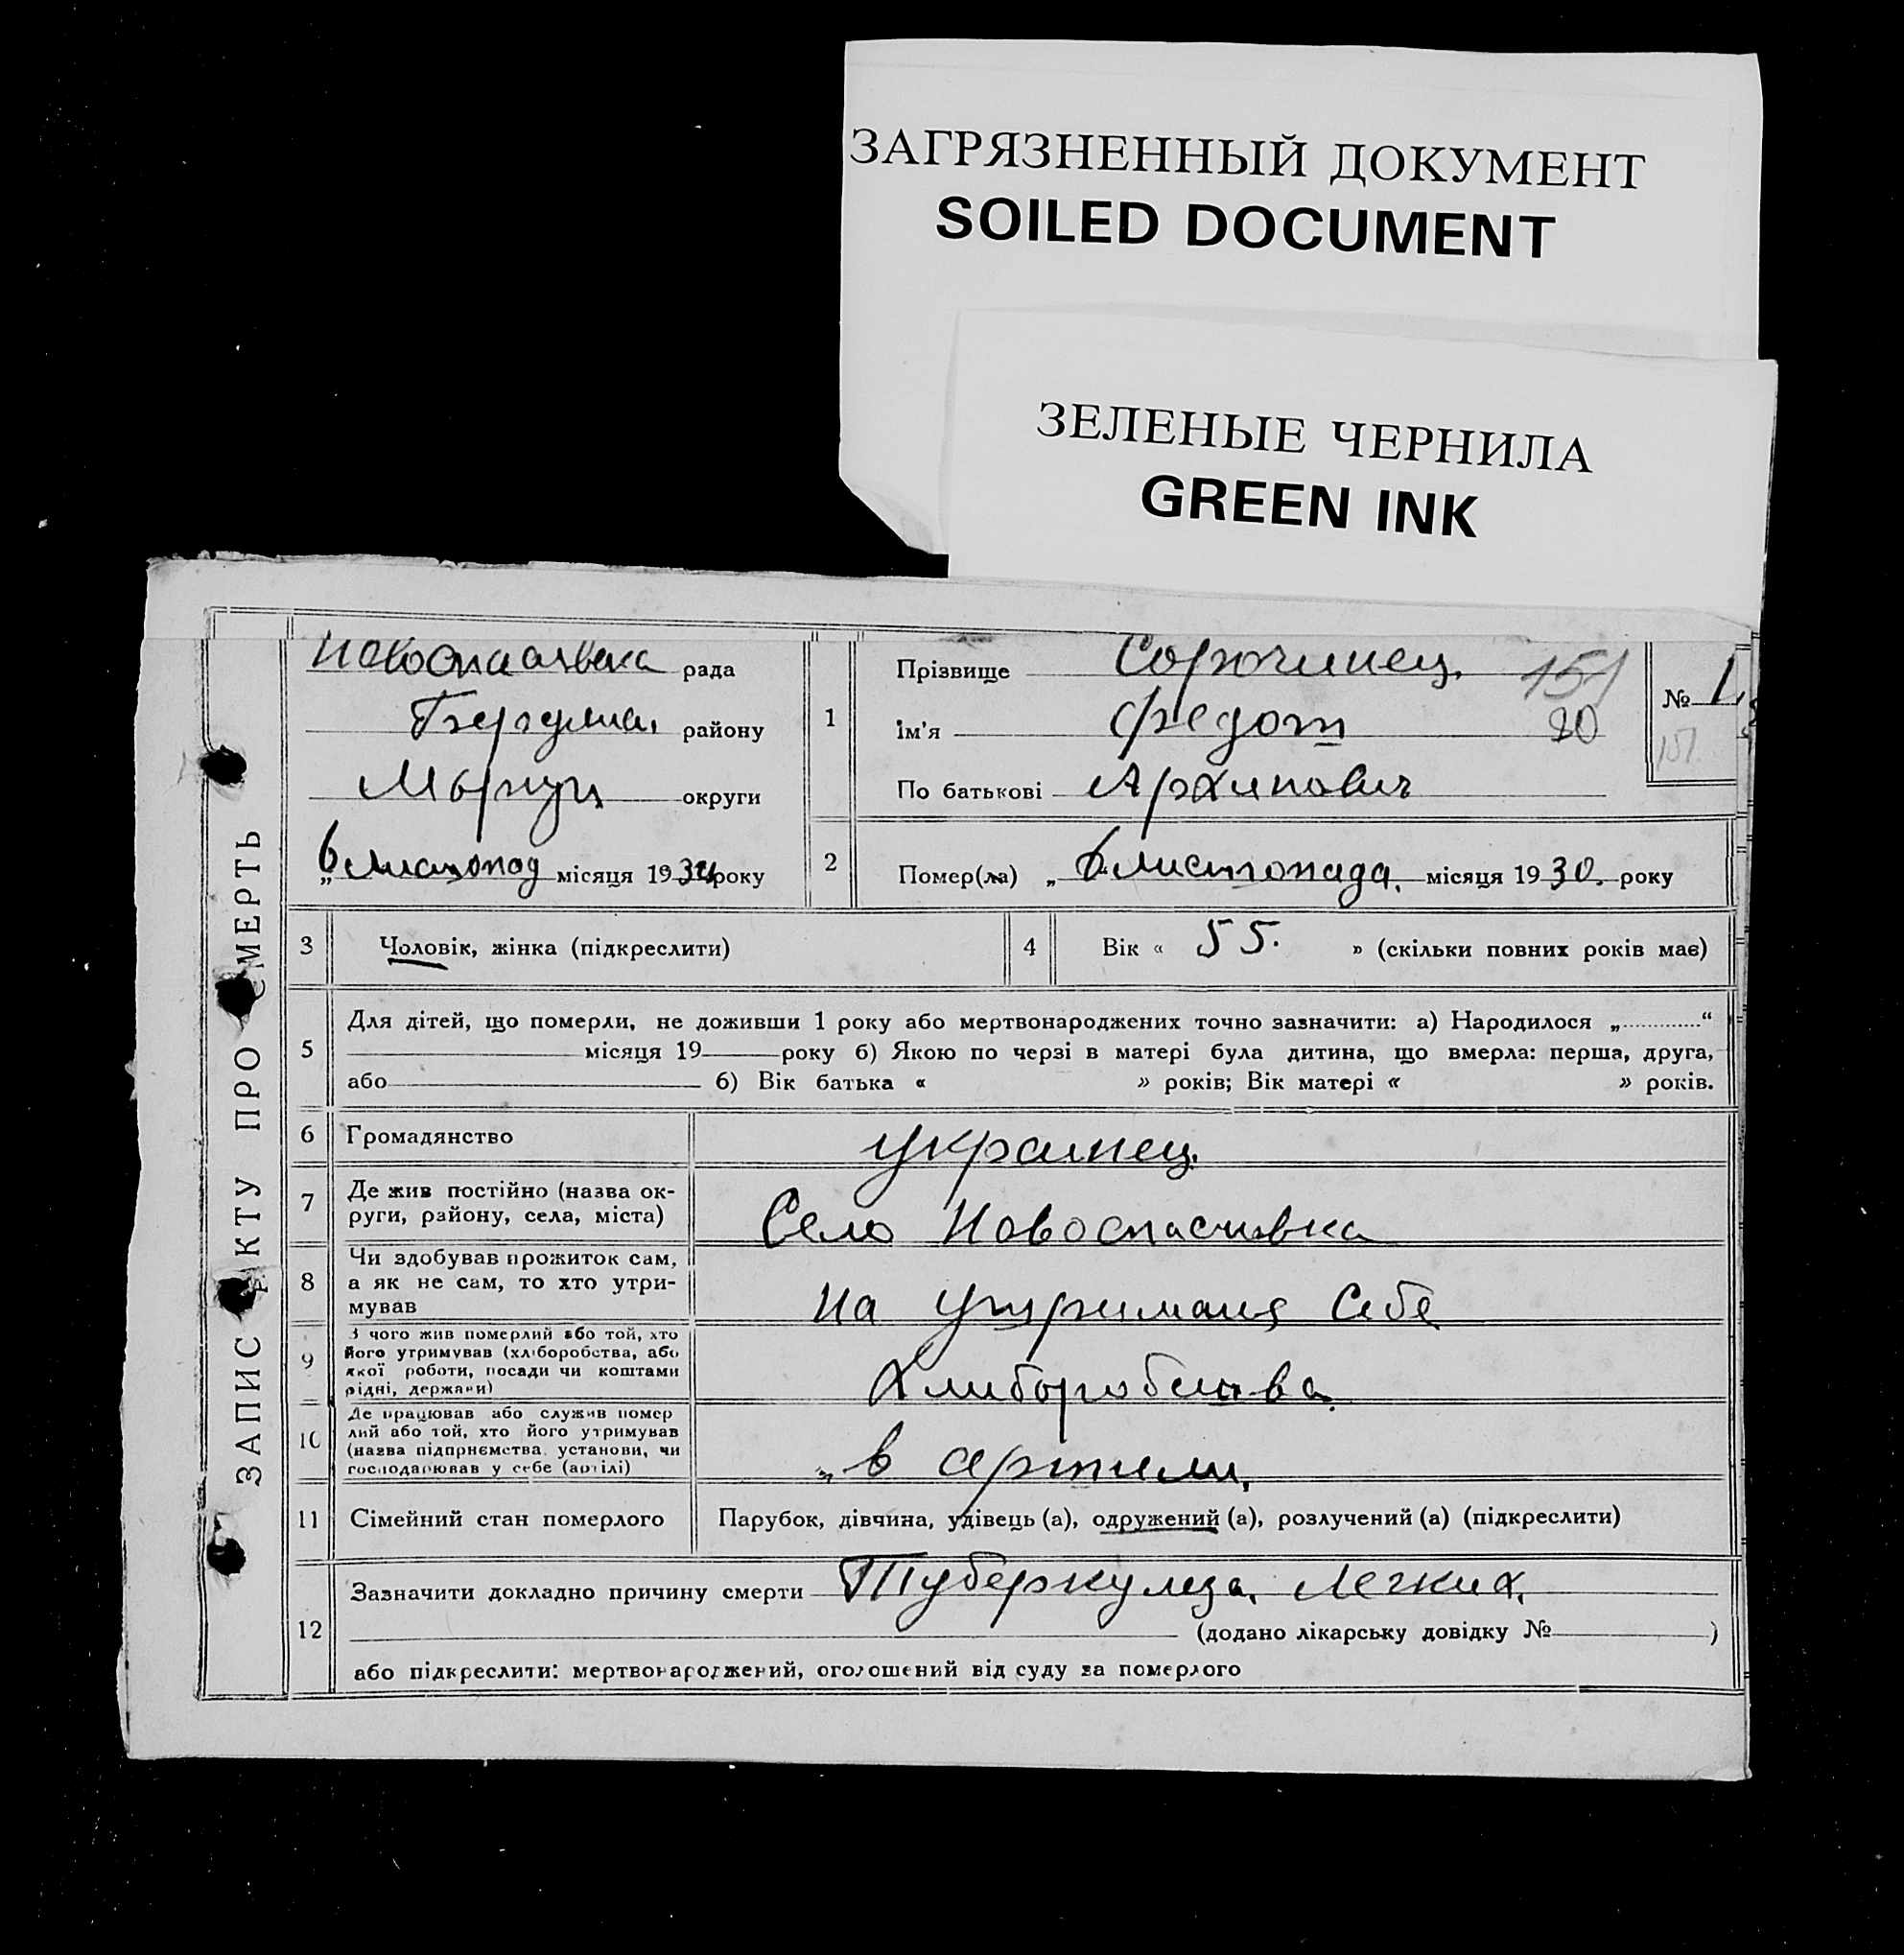 ЗАГРЯЗНЕННЫЙ ДОКУМЕНТ
SOILED DOCUMENT
ЗЕЛЕНЫЕ ЧЕРНИЛА
GREEN INK
ЗАПИС АКТУ ПРО СМЕРТЬ
рада
району
округи
„6 Листопад місяця 1930 року
1
Прізвище Сорочинец. 151
Ім'я Федот 30
По батькові Архипович
№ 1
151
2 Помер(ла) „6 Листопада. місяця 1930. року
3 Чоловік, жінка (підкреслити)
4 Вік « 55. » (скільки повних років має)
5 Для дітей, що померли, не доживши 1 року або мертвонароджених точно зазначити: а) Народилося „ “
місяця 19 року б) Якою по черзі в матері була дитина, що вмерла: перша, друга,
або б) Вік батька « » років; Вік матері « » років.
6 Громадянство украинец.
7 Де жив постійно (назва ок-
руги, району, села, міста) Село Новоспасивка
8 Чи здобував прожиток сам,
а як не сам, то хто утри-
мував На утриманя Себе
9 З чого жив померлий або той, хто
його утримував (хліборобства, або
якої роботи, посади чи коштами
рідні, держави) Хлиборобства
10 Де працював або служив помер
лий або той, хто його утримував
(назва підприємства, установи, чи
господарював у себе (артілі) „в артили,
11 Сімейний стан померлого Парубок, дівчина, удівець (а), одружений (а), розлучений (а) (підкреслити)
12 Зазначити докладно причину смерти Туберкулеза, Легких,
(додано лікарську довідку № )
або підкреслити: мертвонароджений, оголошений від суду за померлого